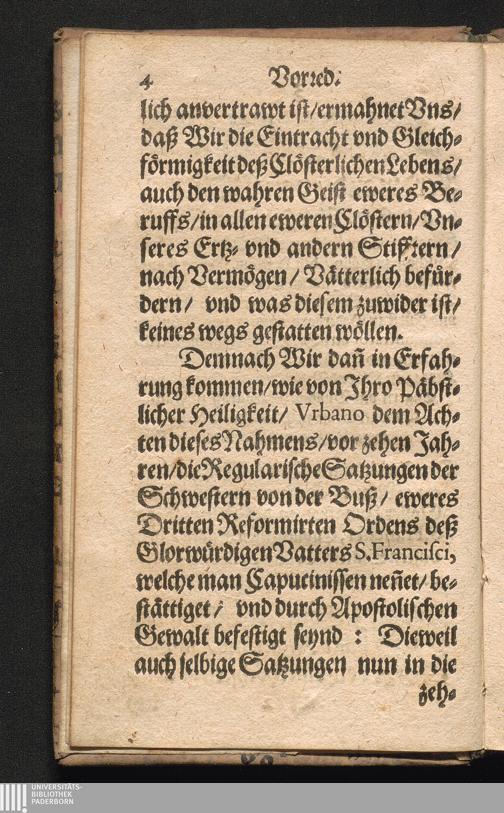 4 Vorred.
lich anvertrawt ist/ermahnet Vns/
daß Wir die Eintracht vnd Gleich-
förmigkeit deß Clösterlichen Lebens/
auch den wahren Geist eweres Be-
ruffs/in allen eweren Clöstern/Vn-
seres Ertz- vnd andern Stifftern/
nach Vermögen/ Vätterlich befür-
dern/ vnd was diesem zuwider ist/
keines wegs gestatten wöllen.
Demnach Wir dañ in Erfah-
rung kommen/wie von Ihro Päbst-
licher Heiligkeit/ Vrbano dem Ach-
ten dieses Nahmens/vor zehen Jah-
ren/die Regularische Satzungen der
Schwestern von der Buß/ eweres
Dritten Reformirten Ordens deß
Glorwürdigen Vatters S. Francisci,
welche man Capucinissen neñet/ be-
stättiget/ vnd durch Apostolischen
Gewalt befestigt seynd : Dieweil
auch selbige Satzungen nun in die
zeh-
UNIVERSITÄTS-
BIBLIOTHEK
PADERBORN